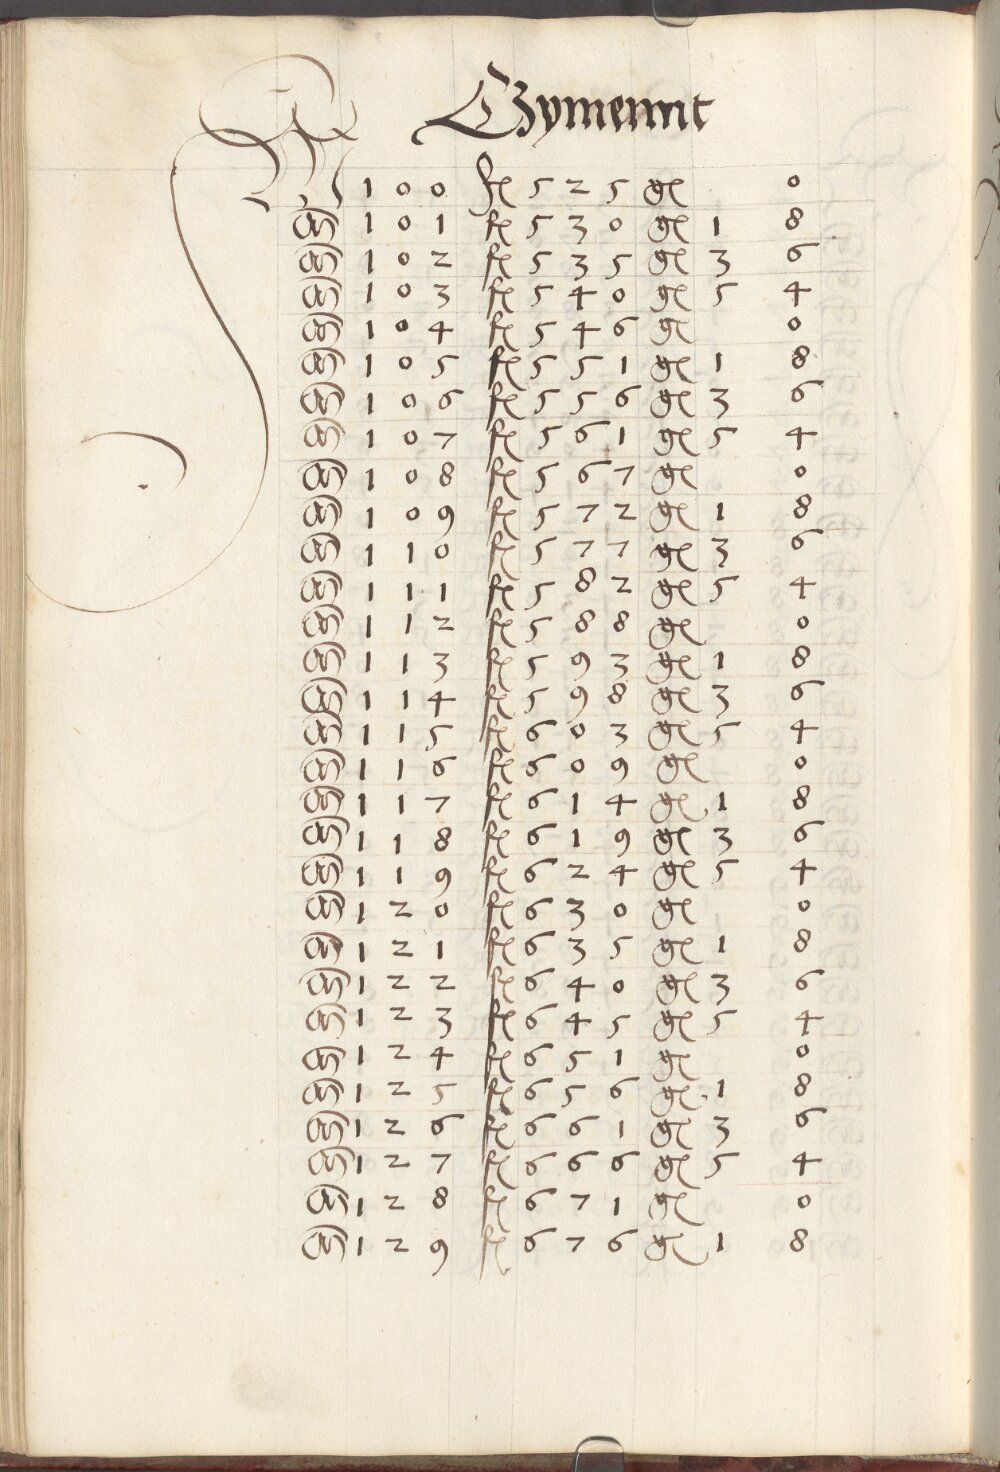 Czymerint
100 fl 525 gl 0
101 fl 530 gl 1 8
102 fl 535 gl 3 6
103 fl 540 gl 5 4
104 fl 546 gl 0
105 fl 551 gl 1 8
106 fl 556 gl 3 6
107 fl 561 gl 5 4
108 fl 567 gl 0
109 fl 572 gl 1 8
110 fl 577 gl 3 6
111 fl 582 gl 5 4
112 fl 588 gl 0
113 fl 593 gl 1 8
114 fl 598 gl 3 6
115 fl 603 gl 5 4
116 fl 609 gl 0
117 fl 614 gl 1 8
118 fl 619 gl 3 6
119 fl 624 gl 5 4
120 fl 630 gl 0
121 fl 635 gl 1 8
122 fl 640 gl 3 6
123 fl 645 gl 5 4
124 fl 651 gl 0
125 fl 656 gl 1 8
126 fl 661 gl 3 6
127 fl 666 gl 5 4
128 fl 671 gl 0
129 fl 676 gl 1 8